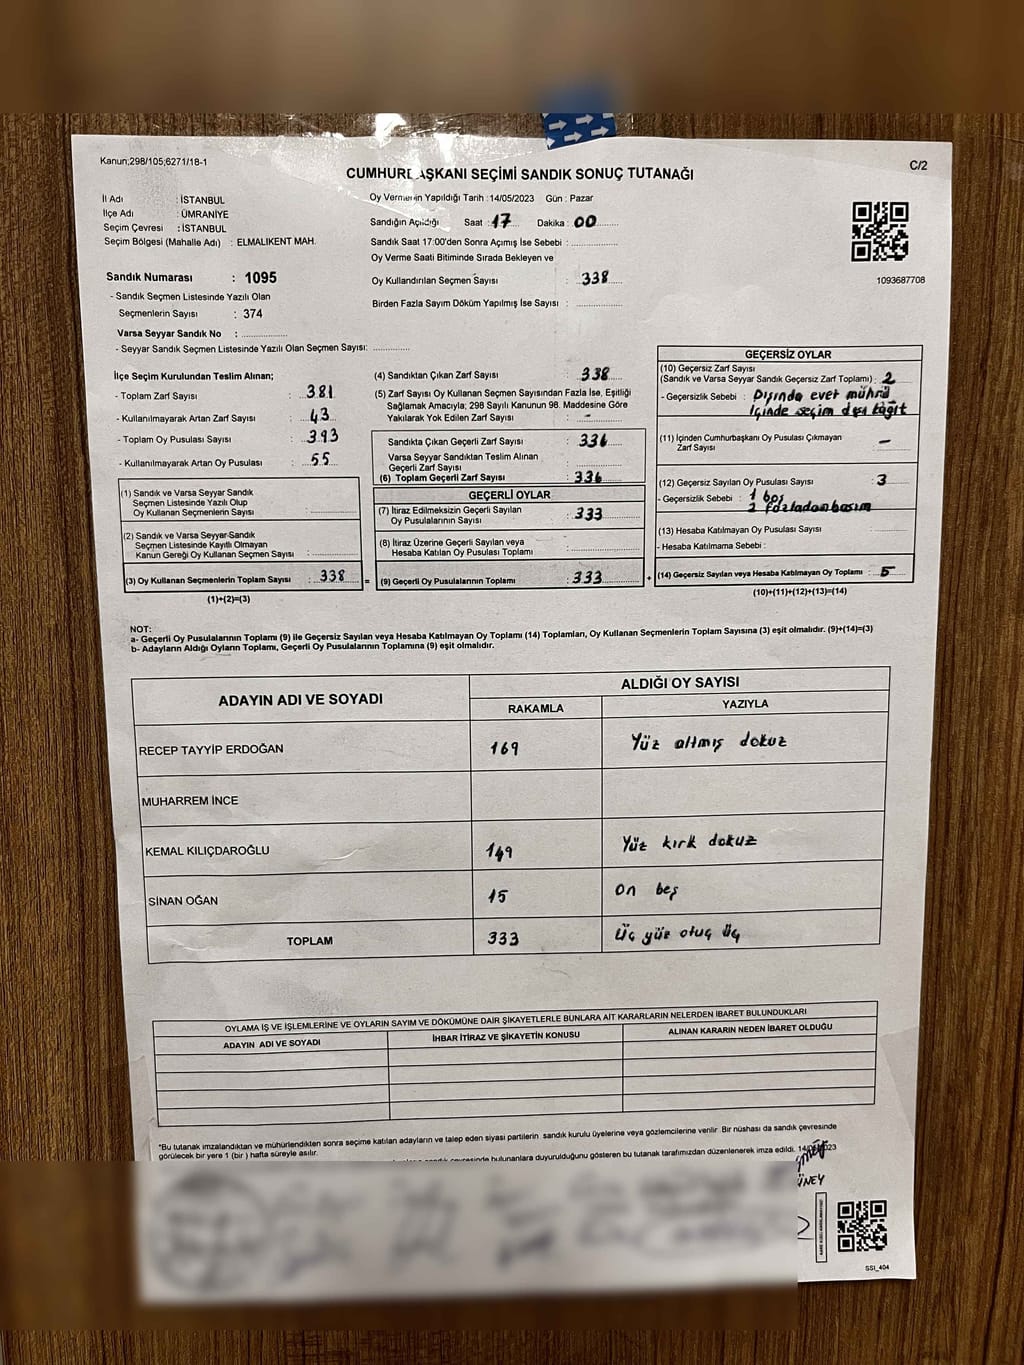 Kanun;298/105;6271/18-1
C/2
CUMHURBAŞKANI SEÇİMİ SANDIK SONUÇ TUTANAĞI
İl Adı : İSTANBUL
İlçe Adı : ÜMRANİYE
Seçim Çevresi : İSTANBUL
Seçim Bölgesi (Mahalle Adı) : ELMALIKENT MAH.
Oy Vermenin Yapıldığı Tarih : 14/05/2023 Gün : Pazar
Sandığın Açıldığı Saat : 17 Dakika : 00
Sandık Saat 17:00'den Sonra Açımış İse Sebebi :
Oy Verme Saati Bitiminde Sırada Bekleyen ve
Oy Kullandırılan Seçmen Sayısı : 338
Birden Fazla Sayım Döküm Yapılmış İse Sayısı :
1093687708
Sandık Numarası : 1095
- Sandık Seçmen Listesinde Yazılı Olan
Seçmenlerin Sayısı : 374
Varsa Seyyar Sandık No :
- Seyyar Sandık Seçmen Listesinde Yazılı Olan Seçmen Sayısı:
İlçe Seçim Kurulundan Teslim Alınan;
- Toplam Zarf Sayısı : 381
- Kullanılmayarak Artan Zarf Sayısı : 43
- Toplam Oy Pusulası Sayısı : 393
- Kullanılmayarak Artan Oy Pusulası : 55
(1) Sandık ve Varsa Seyyar Sandık
Seçmen Listesinde Yazılı Olup
Oy Kullanan Seçmenlerin Sayısı :
(2) Sandık ve Varsa Seyyar Sandık
Seçmen Listesinde Kayıtlı Olmayan
Kanun Gereği Oy Kullanan Seçmen Sayısı :
(3) Oy Kullanan Seçmenlerin Toplam Sayısı : 338 =
(1)+(2)=(3)
(4) Sandıktan Çıkan Zarf Sayısı : 338
(5) Zarf Sayısı Oy Kullanan Seçmen Sayısından Fazla İse, Eşitliği
Sağlamak Amacıyla; 298 Sayılı Kanunun 98. Maddesine Göre
Yakılarak Yok Edilen Zarf Sayısı : -
Sandıkta Çıkan Geçerli Zarf Sayısı : 336
Varsa Seyyar Sandıktan Teslim Alınan
Geçerli Zarf Sayısı :
(6) Toplam Geçerli Zarf Sayısı : 336
GEÇERLİ OYLAR
(7) İtiraz Edilmeksizin Geçerli Sayılan
Oy Pusulalarının Sayısı : 333
(8) İtiraz Üzerine Geçerli Sayılan veya
Hesaba Katılan Oy Pusulası Toplamı :
(9) Geçerli Oy Pusulalarının Toplamı : 333 +
GEÇERSİZ OYLAR
(10) Geçersiz Zarf Sayısı
(Sandık ve Varsa Seyyar Sandık Geçersiz Zarf Toplamı) : 2
- Geçersizlik Sebebi : Dışında evet mührü
içinde seçim dışı kağıt
(11) İçinden Cumhurbaşkanı Oy Pusulası Çıkmayan
Zarf Sayısı : -
(12) Geçersiz Sayılan Oy Pusulası Sayısı : 3
- Geçersizlik Sebebi : 1 boş
2 fazladan basım
(13) Hesaba Katılmayan Oy Pusulası Sayısı :
- Hesaba Katılmama Sebebi :
(14) Geçersiz Sayılan veya Hesaba Katılmayan Oy Toplamı : 5
(10)+(11)+(12)+(13)=(14)
NOT:
a- Geçerli Oy Pusulalarının Toplamı (9) ile Geçersiz Sayılan veya Hesaba Katılmayan Oy Toplamı (14) Toplamları, Oy Kullanan Seçmenlerin Toplam Sayısına (3) eşit olmalıdır. (9)+(14)=(3)
b- Adayların Aldığı Oyların Toplamı, Geçerli Oy Pusulalarının Toplamına (9) eşit olmalıdır.
ADAYIN ADI VE SOYADI
ALDIĞI OY SAYISI
RAKAMLA YAZIYLA
RECEP TAYYİP ERDOĞAN 169 Yüz altmış dokuz
MUHARREM İNCE
KEMAL KILIÇDAROĞLU 149 Yüz kırk dokuz
SİNAN OĞAN 15 on beş
TOPLAM 333 üç yüz otuz üç
OYLAMA İŞ VE İŞLEMLERİNE VE OYLARIN SAYIM VE DÖKÜMÜNE DAİR ŞİKAYETLERLE BUNLARA AİT KARARLARIN NELERDEN İBARET BULUNDUKLARI
ADAYIN ADI VE SOYADI İHBAR İTİRAZ VE ŞİKAYETİN KONUSU ALINAN KARARIN NEDEN İBARET OLDUĞU
*Bu tutanak imzalandıktan ve mühürlendikten sonra seçime katılan adayların ve talep eden siyasi partilerin sandık kurulu üyelerine veya gözlemcilerine verilir. Bir nüshası da sandık çevresinde
görülecek bir yere 1 (bir) hafta süreyle asılır.
bulunanlara duyurulduğunu gösteren bu tutanak tarafımızdan düzenlenerek imza edildi. 14/05/2023
SSI_404